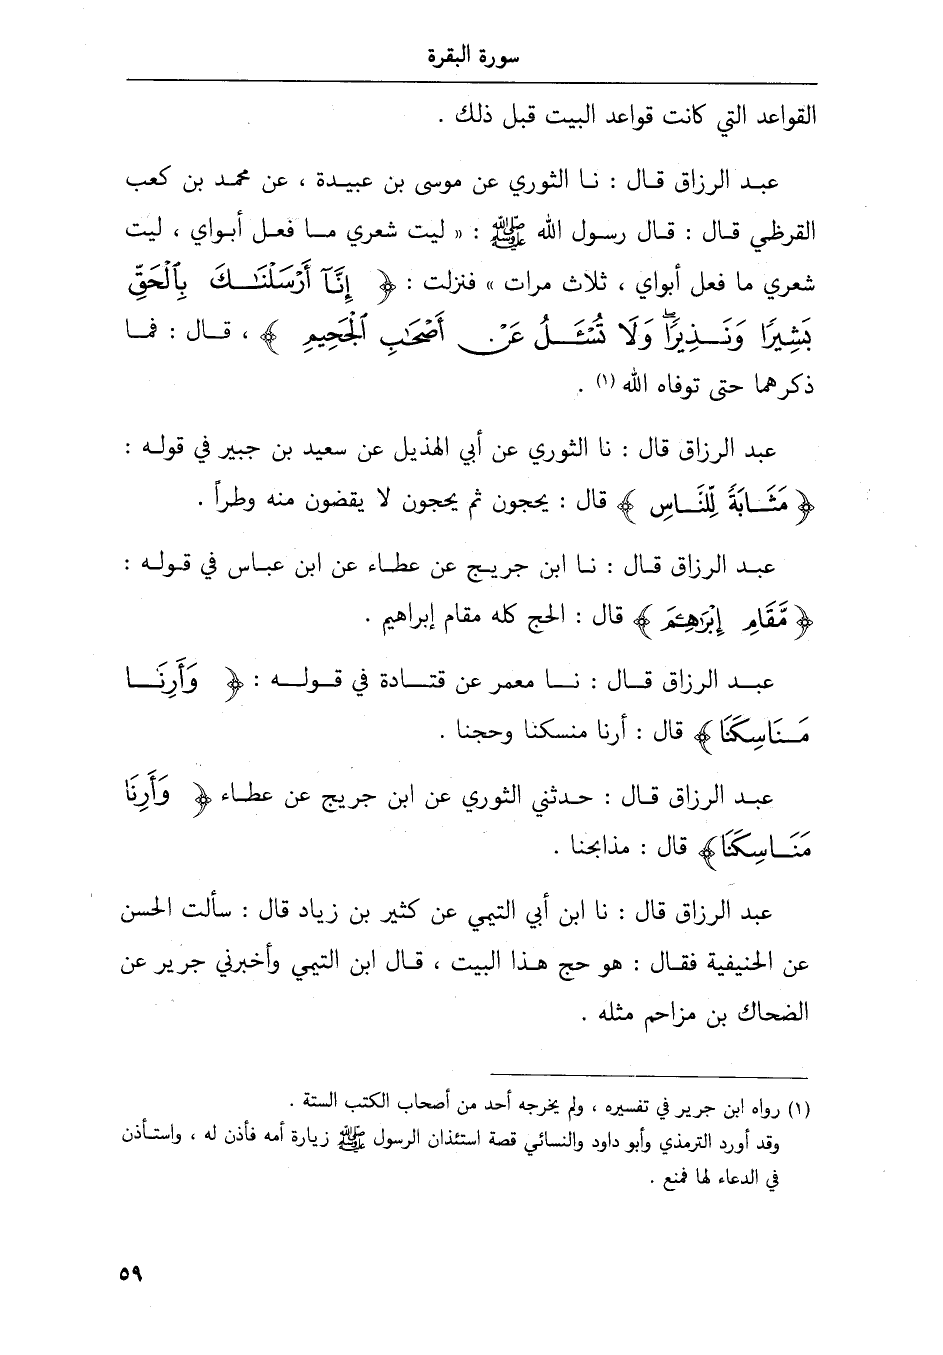 سورة البقرة
القواعد التي كانت قواعد البيت قبل ذلك .
عبد الرزاق قال : نا الثوري عن موسى بن عبيدة ، عن محمد بن كعب
القرظي قال : قال رسول الله ﷺ : « ليت شعري ما فعل أبواي ، ليت
شعري ما فعل أبواي ، ثلاث مرات » فنزلت : ﴿ إِنَّآ أَرْسَلْنَـٰكَ بِٱلْحَقِّ
بَشِيرًا وَنَذِيرًا ۖ وَلَا تُسْـَٔلُ عَنْ أَصْحَـٰبِ ٱلْجَحِيمِ ﴾ ، قال : فما
ذكرهما حتى توفاه الله (١) .
عبد الرزاق قال : نا الثوري عن أبي الهذيل عن سعيد بن جبير في قوله :
﴿ مَثَابَةً لِّلنَّاسِ ﴾ قال : يحجون ثم يحجون لا يقضون منه وطراً .
عبد الرزاق قال : نا ابن جريج عن عطاء عن ابن عباس في قوله :
﴿ مَّقَامِ إِبْرَٰهِـۧمَ ﴾ قال : الحج كله مقام إبراهيم .
عبد الرزاق قال : نا معمر عن قتادة في قوله : ﴿ وَأَرِنَا
مَنَاسِكَنَا ﴾ قال : أرنا منسكنا وحجنا .
عبد الرزاق قال : حدثني الثوري عن ابن جريج عن عطاء ﴿ وَأَرِنَا
مَنَاسِكَنَا ﴾ قال : مذابحنا .
عبد الرزاق قال : نا ابن أبي التيمي عن كثير بن زياد قال : سألت الحسن
عن الحنيفية فقال : هو حج هذا البيت ، قال ابن التيمي وأخبرني جرير عن
الضحاك بن مزاحم مثله .
(١) رواه ابن جرير في تفسيره ، ولم يخرجه أحد من أصحاب الكتب الستة .
وقد أورد الترمذي وأبو داود والنسائي قصة استئذان الرسول ﷺ زيارة أمه فأذن له ، واستأذن
في الدعاء لها فمنع .
٥٩